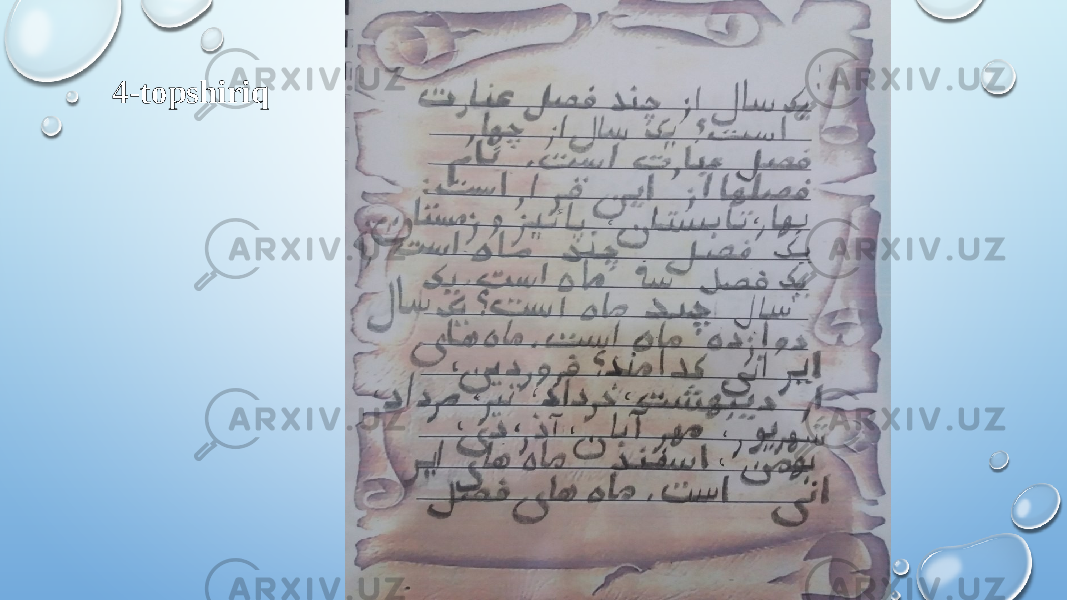 4-topshiriq
یک سال از چند فصل عبارت
است؟ یک سال از چهار
فصل عبارت است. نام
فصلها از این قرار است:
بهار، تابستان، پائیز و زمستان
یک فصل چند ماه است
یک فصل سه ماه است. یک
سال چند ماه است؟ یک سال
دوازده ماه است. ماه های
ایرانی کدامند؟ فروردین،
اردیبهشت، خرداد، تیر، مرداد
شهریور، مهر آبان، آذر، دی،
بهمن، اسفند ماه های ایر
انی است. ماه های فصل
ARXIV.UZ
ARXIV.UZ
ARXIV.UZ
ARXIV.UZ
ARXIV.UZ
ARXIV.UZ
ARXIV.UZ
ARXIV.UZ